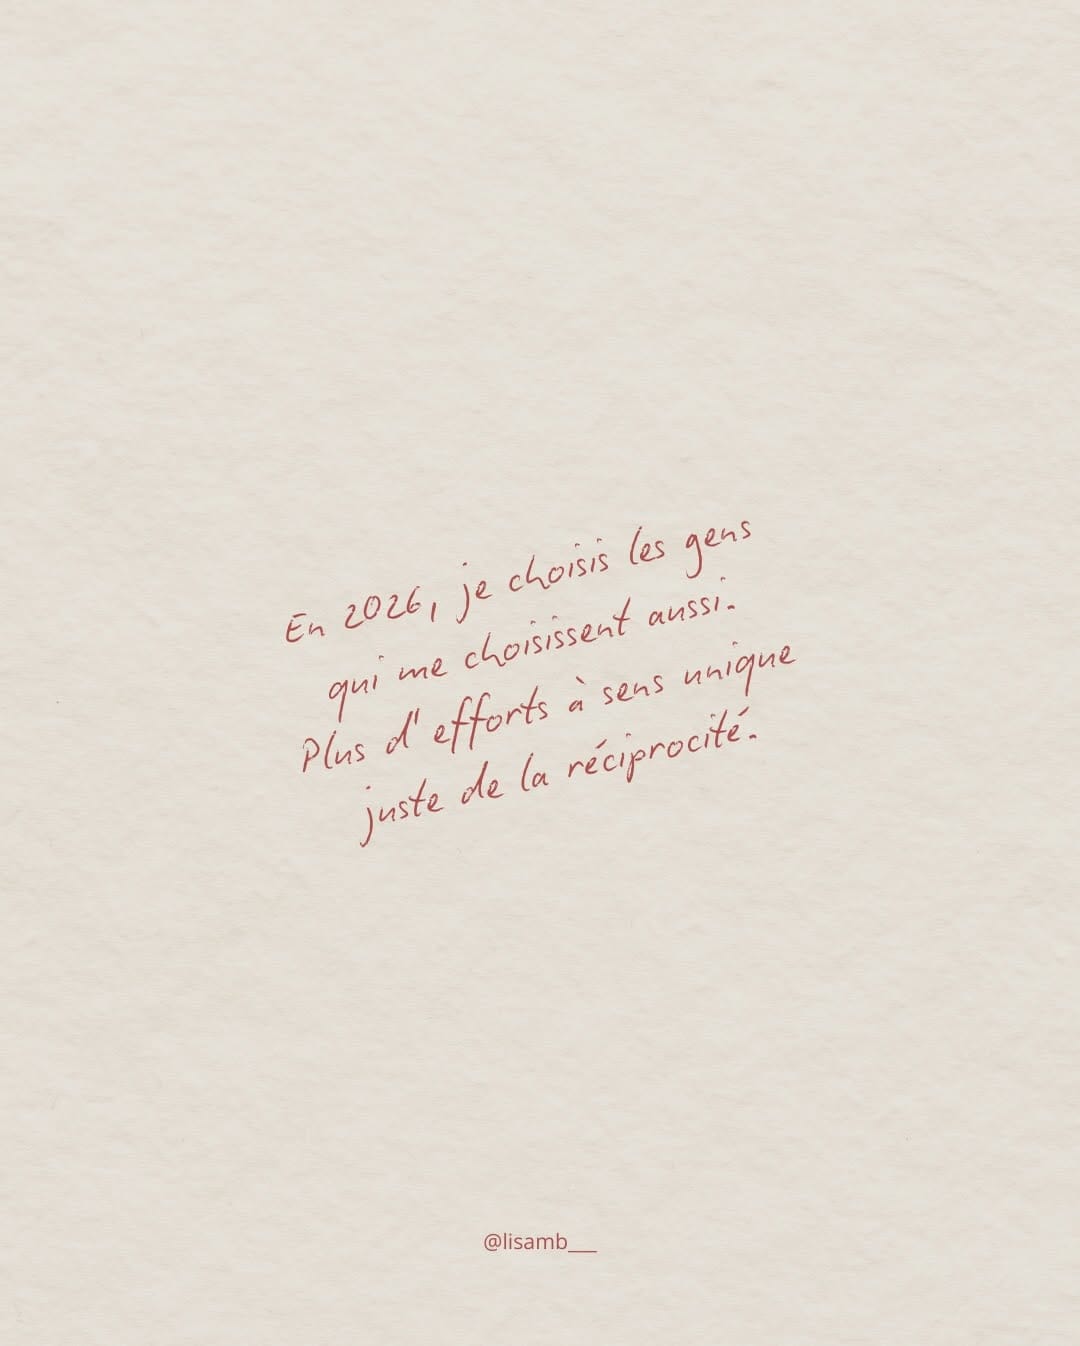 En 2026, je choisis les gens
qui me choisissent aussi.
Plus d'efforts à sens unique
juste de la réciprocité.
@lisamb___